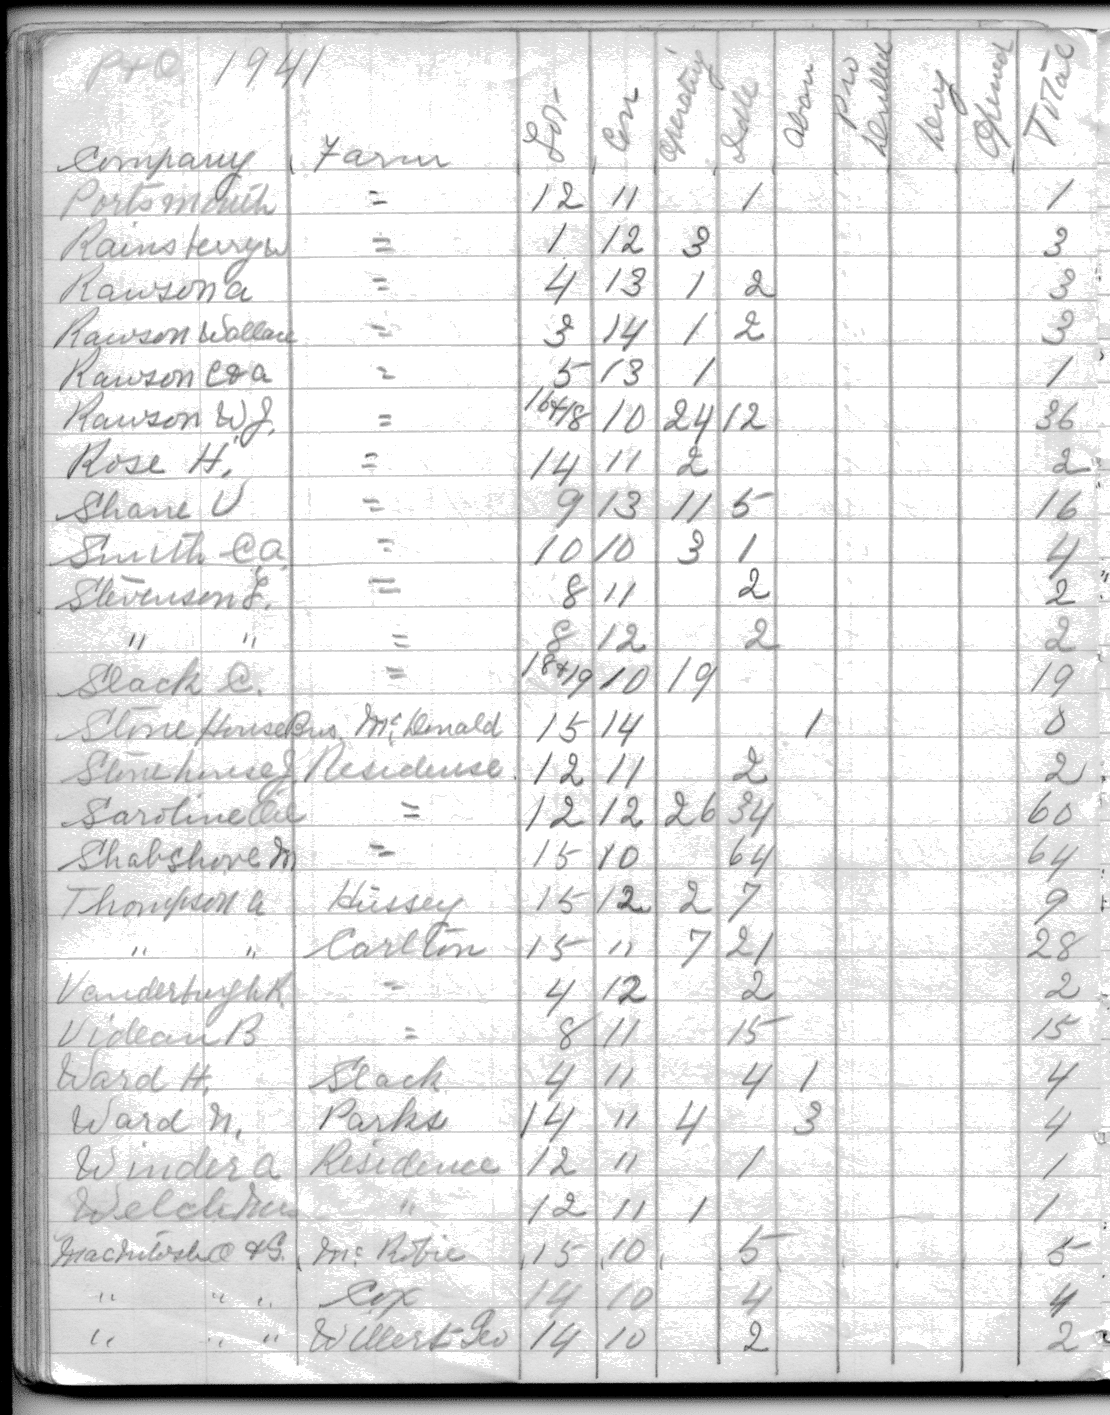 P+O 1941
Company Farm Lot Con Operating Idle Aban Pro Drilled Dry Opened Total
Portsmouth = 12 11 1 1
Rainsberry W = 1 12 3 3
Rawson A = 4 13 1 2 3
Rawson Wallace = 3 14 1 2 3
Rawson C & A = 5 13 1 1
Rawson W J. = 16+18 10 24 12 36
Rose H. = 14 11 2 2
Shane V = 9 13 11 5 16
Smith C.A. = 10 10 3 1 4
Stevenson J. = 8 11 2 2
" " = 8 12 2 2
Slack C. = 18+19 10 19 19
Stone House Bros. Mc Donald 15 14 1 0
Stonehouse J Residense 12 11 2 2
Saroline Oil = 12 12 26 34 60
Shabshove M = 15 10 64 64
Thompson A Hussey 15 12 2 7 9
" " Carlton 15 " 7 21 28
Vanderburgh R. = 4 12 2 2
Videan B = 8 11 15 15
Ward H. Slack 4 11 4 1 4
Ward N. Parks 14 11 4 3 4
Winder A Residence 12 11 1 1
Welch " 12 11 1 1
MacIntosh C & G. Mc Robie 15 10 5 5
" " " Cox 14 10 4 4
" " " Willert Geo 14 10 2 2